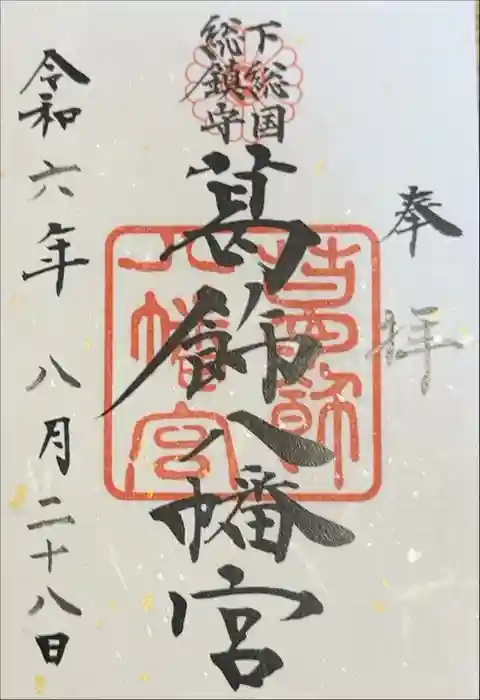 奉拝
下総国
総鎮守
葛飾八幡宮
葛飾
八幡宮
令和六年 八月二十八日